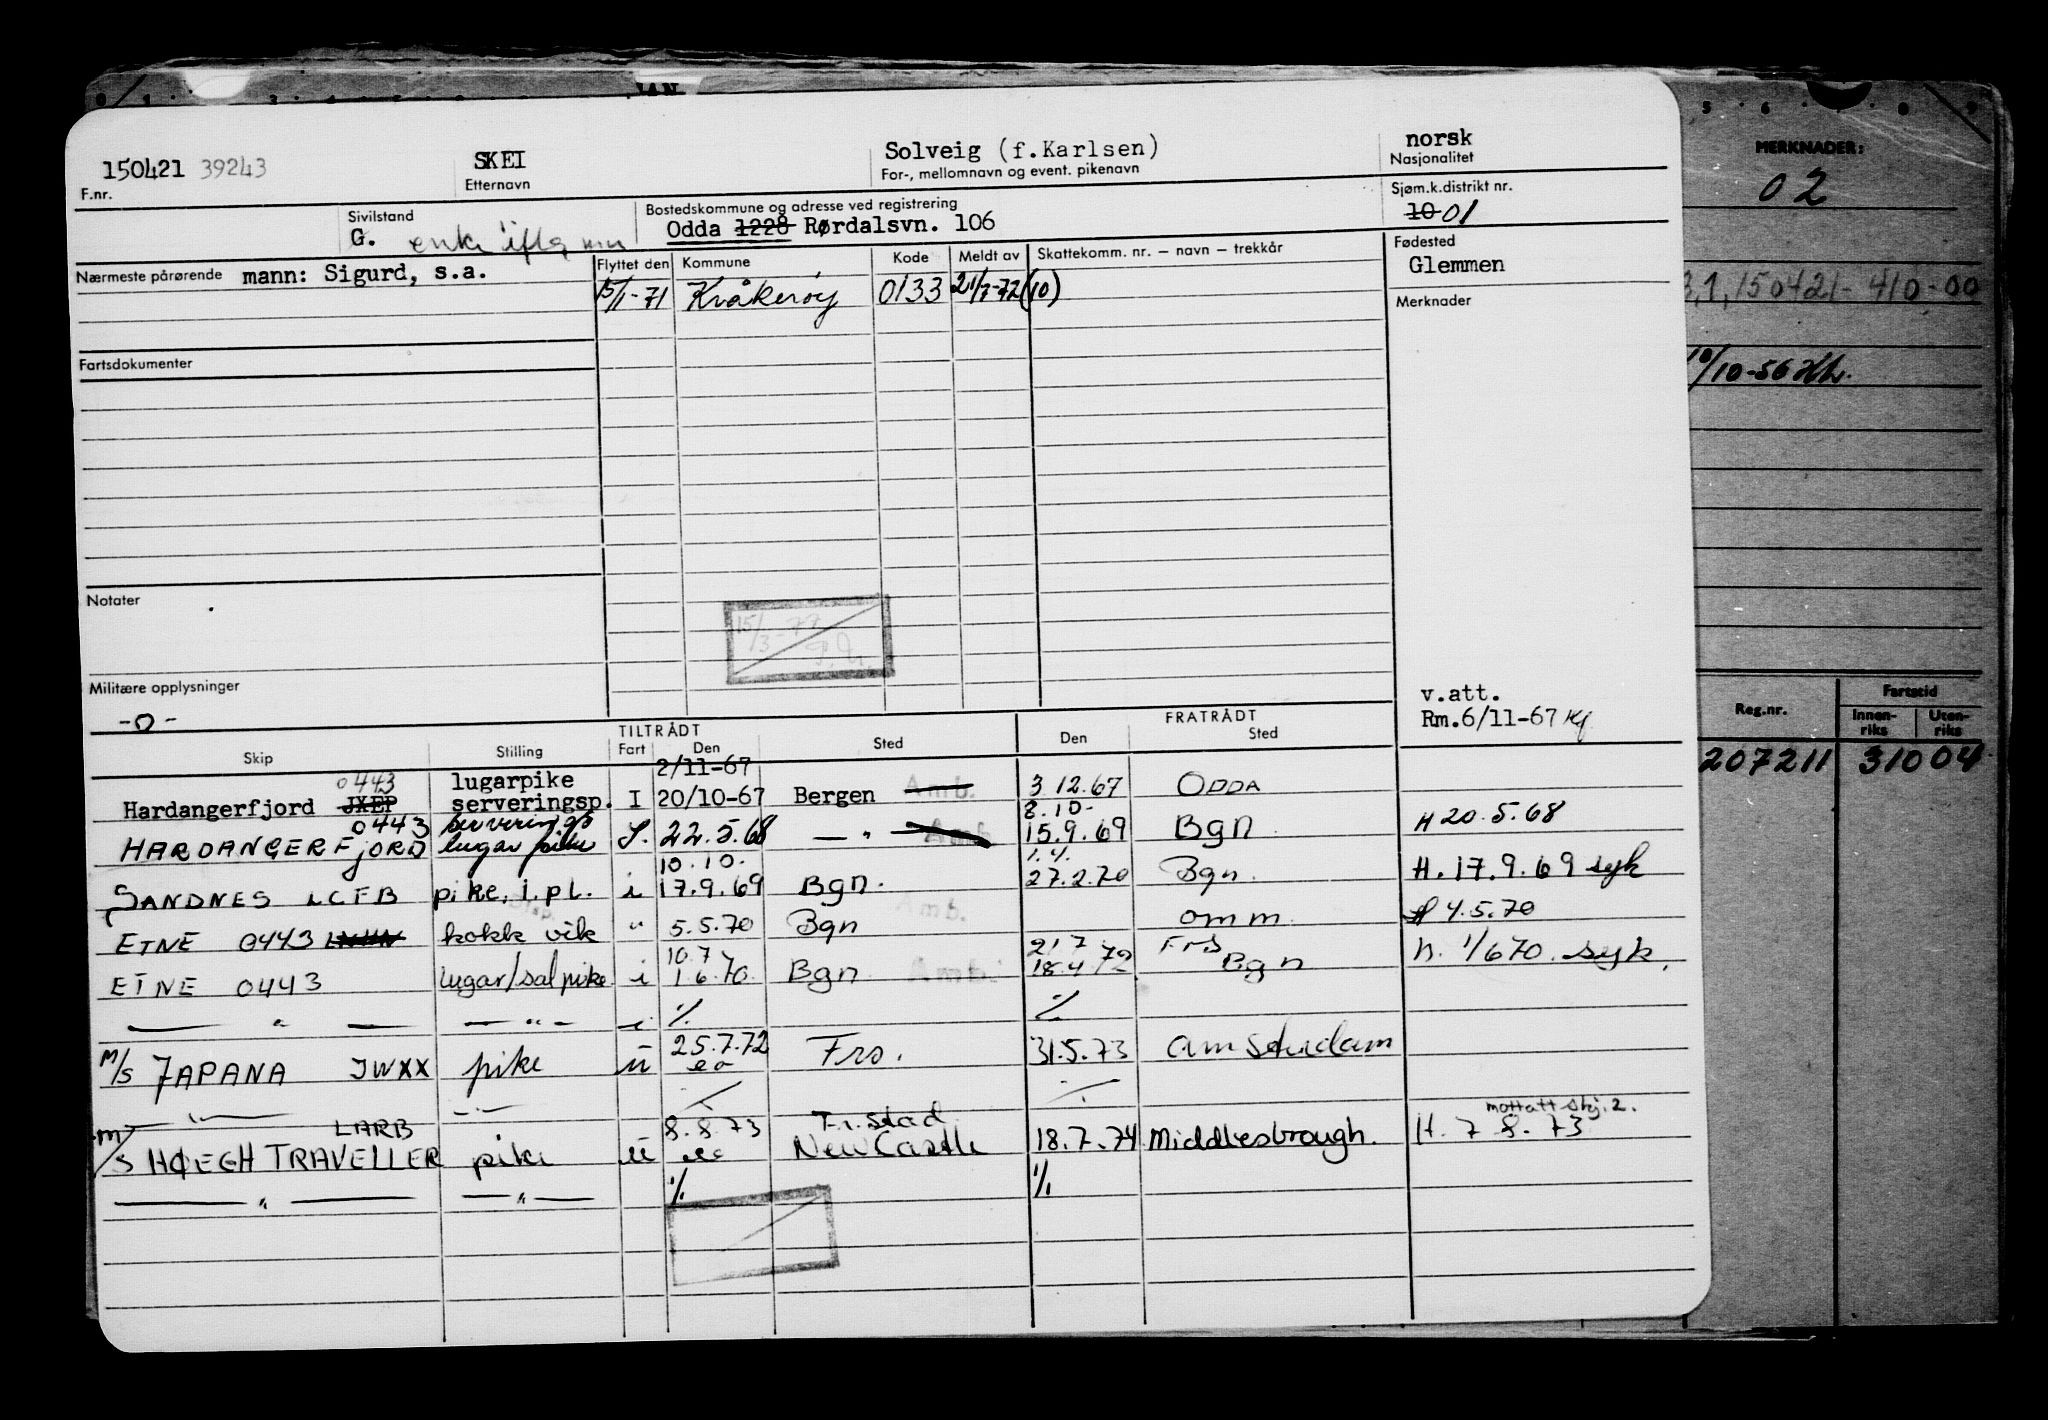 JAN
MERKNADER:
02
3,1,150421- 410-00
10/10-56
Reg.nr. Fartstid
Innen-riks Uten-riks
207211 310 04
150421 39243 SKEI Solveig (f.Karlsen) norsk
F.nr. Etternavn For-, mellomnavn og event. pikenavn Nasjonalitet
Sivilstand Bostedskommune og adresse ved registrering Sjøm.k.distrikt nr.
G. enke Odda 1228 Rørdalsvn. 106 10 01
Nærmeste pårørende mann: Sigurd, s.a. Flyttet den Kommune Kode Meldt av Skattekomm. nr. – navn – trekkår Fødested
Glemmen
15/1-71 Kråkerøy 0133 21/7-72 (10) Merknader
Fartsdokumenter
Notater
15/3-77
Militære opplysninger
-0-
v.att.
Rm.6/11-67
TILTRÅDT FRATRÅDT
Skip Stilling Fart Den Sted Den Sted
0443 lugarpike 2/11-67
Hardangerfjord JXEP serveringsp. I 20/10-67 Bergen Amb. 3 12.67 ODDA
0443 serverings 8.10-
HARDANGERFJORD lugar pike S. 22.5.68 — " — Amb. 15.9.69 Bgn H 20.5.68
10.10. 1.4.
SANDNES LCFB pike, i.pl. i 17.9.69 Bgn. 27.2.70 Bgn. H. 17.9.69 syk
Amb.
ETNE 0443 kokk vik " 5.5.70 Bgn omm. H 4.5.70
10.7 21 7 72 Frs
ETNE 0443 lugar/sal pike i 1 6 70 Bgn Amb. 18.4 72 Bgn h. 1/6 70. syk.
— " — — " — i % %
M/S JAPANA JWXX pike u 25.7.72 Fro. 31.5.73 Amsterdam
LARB 8.8.73 Fr.stad mottatt sbj.2.
M/S HØEGH TRAVELLER pike u NewCastle 18.7.74 Middlesbrough. H. 7 8. 73
— " — — " — % %